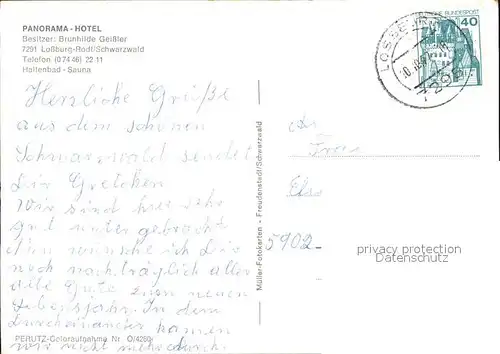 PANORAMA - HOTEL
Besitzer: Brunhilde Geißler
7291 Loßburg-Rodt/Schwarzwald
Telefon (0 74 46) 22 11
Hallenbad - Sauna
Herzliche Grüße
aus dem schönen
Schwarzwald sendet
Dir Gretchen
Wir sind hier sehr
gut unter gebracht
Nun wünsche ich Dir
noch nachträglich alles
alle Gute zum neuen
Lebensjahr. In dem
Durcheinander kamen
wir nicht mehr durch.
PERUTZ-Coloraufnahme Nr. O/4280
Müller-Fotokarten - Freudenstadt/Schwarzwald
BUNDESPOST
40
LOSSBURG
An
Frau
Els
5902
privacy protection
Datenschutz